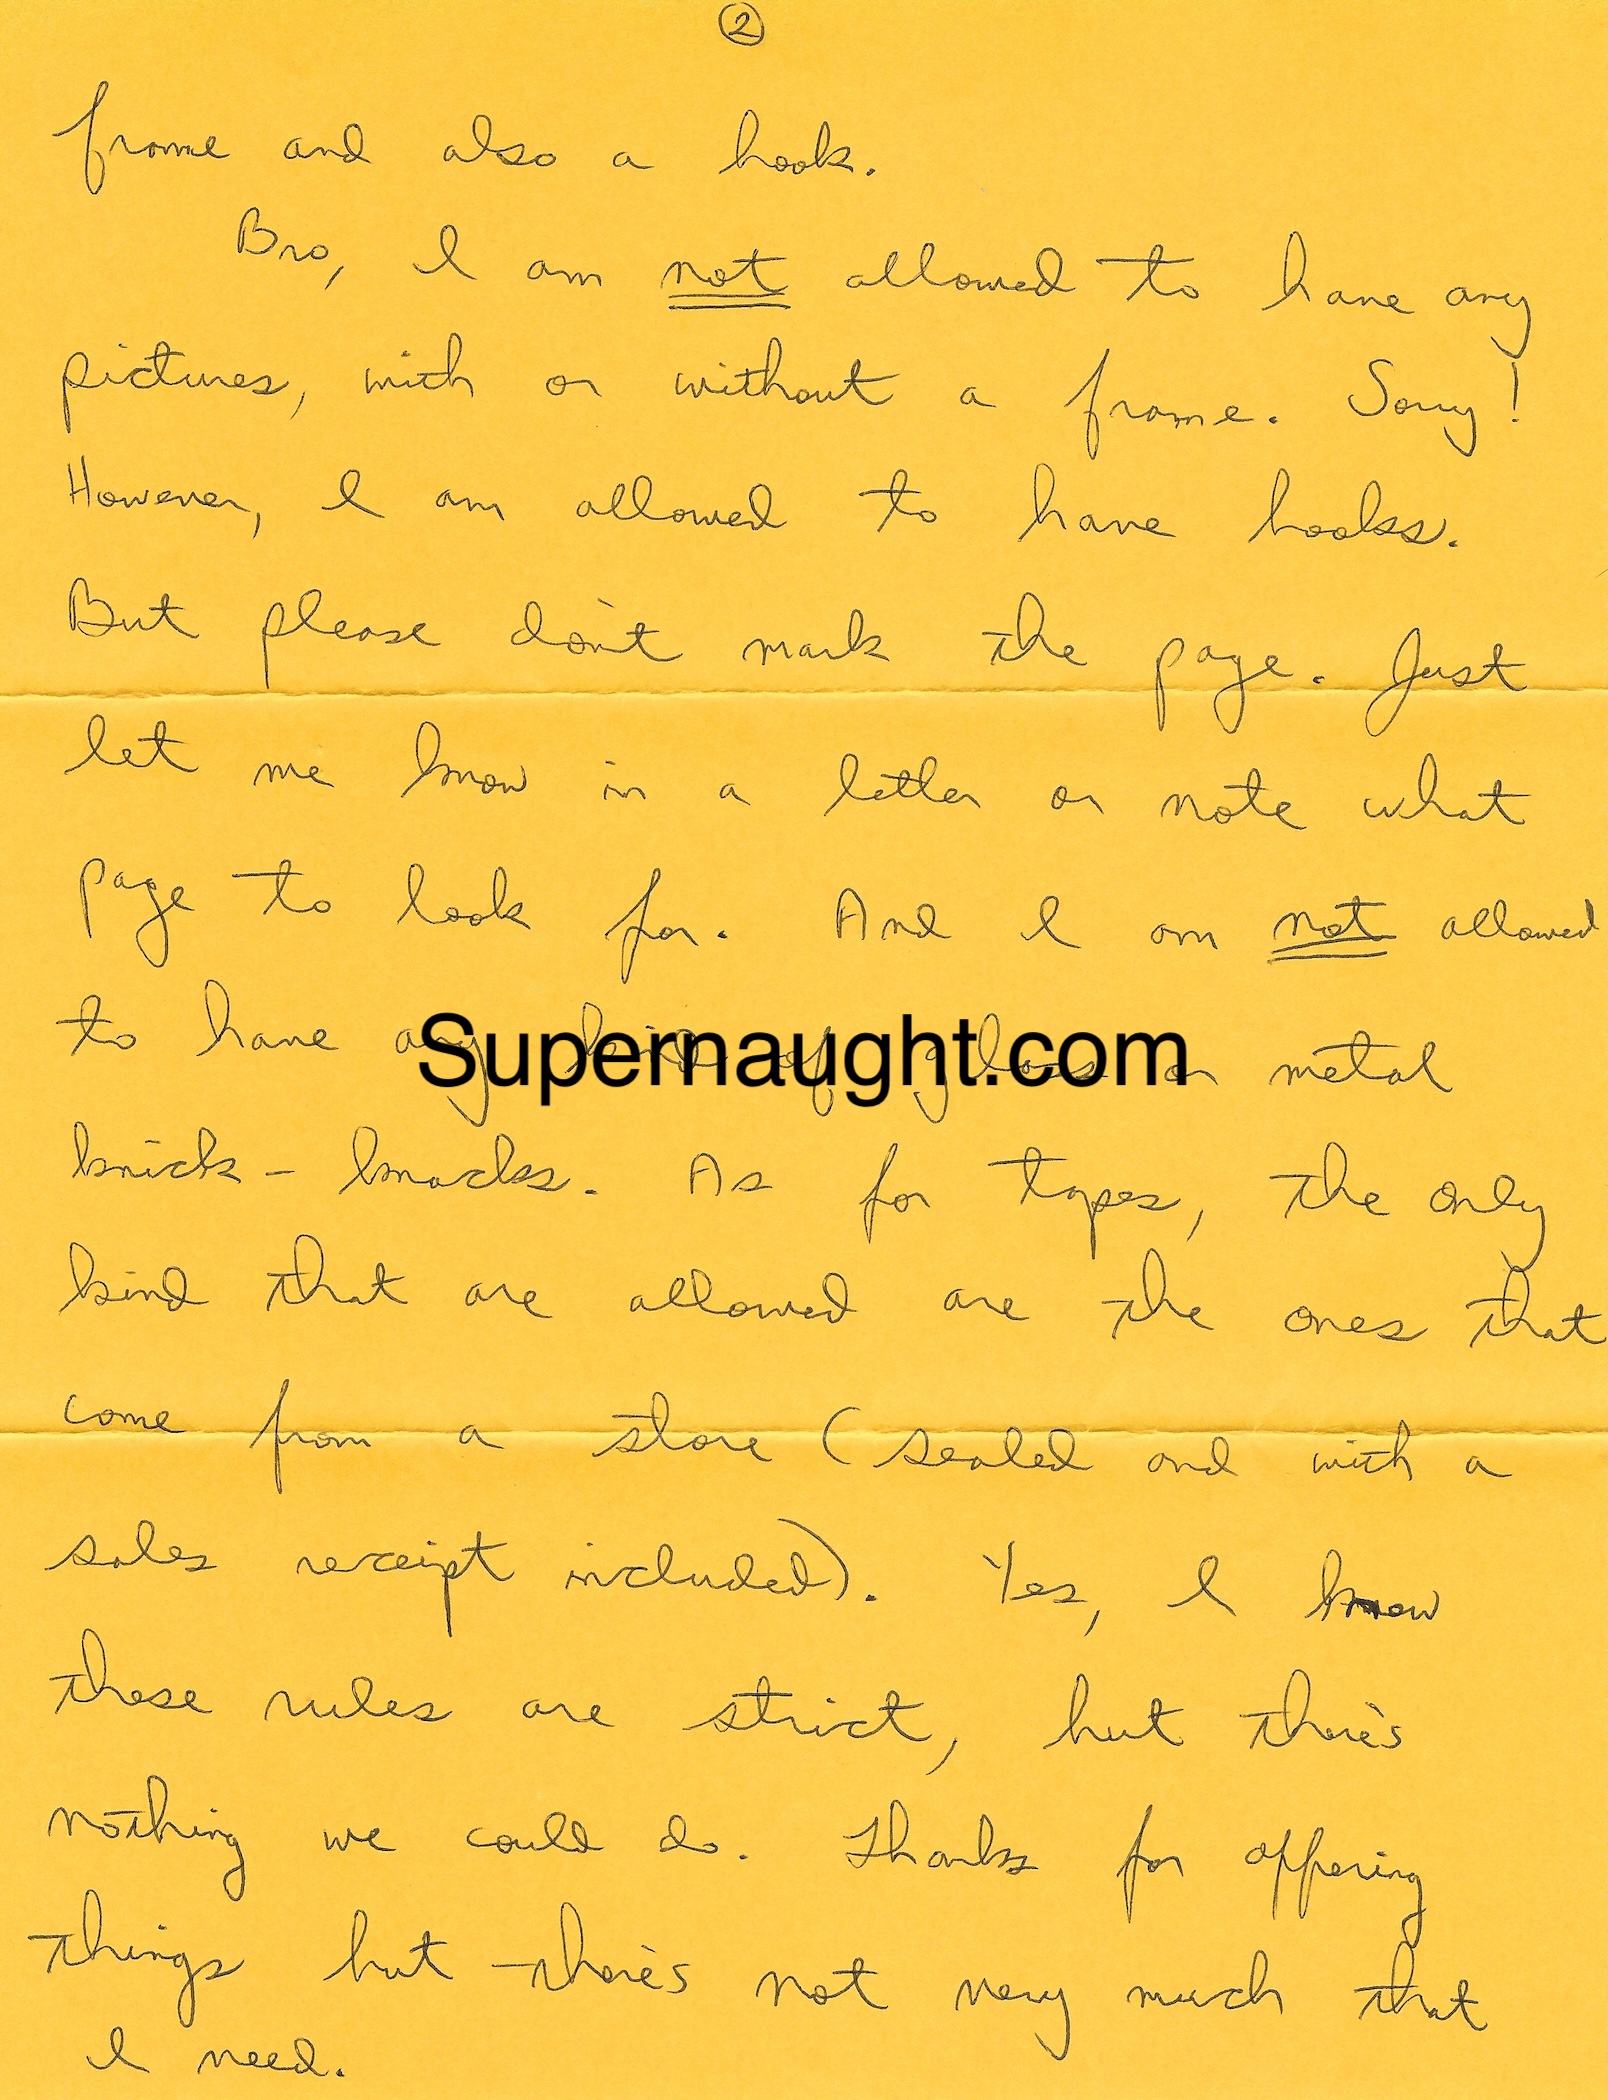 2
frame and also a book.
Bro, I am not allowed to have any
pictures, with or without a frame. Sorry!
However, I am allowed to have books.
But please don't mark the page. Just
let me know in a letter or note what
page to look for. And I am not allowed
to have any kind of glass or metal
Supernaught.com
knick-knacks. As for tapes, the only
kind that are allowed are the ones that
come from a store (sealed and with a
sales receipt included). Yes, I know
these rules are strict, but there's
nothing we could do. Thanks for offering
things but there's not very much that
I need.